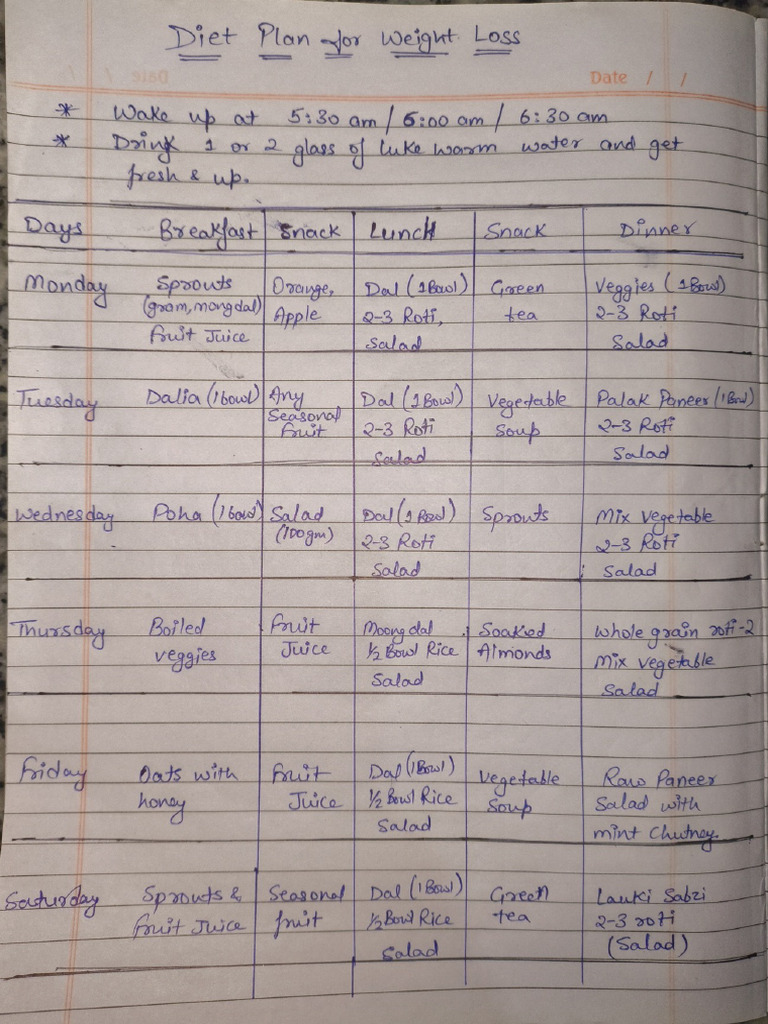 Diet Plan for Weight Loss
Date / /
* Wake up at 5:30 am / 6:00 am / 6:30 am
* Drink 1 or 2 glass of luke warm water and get
fresh & up.
Days Breakfast Snack Lunch Snack Dinner
Monday Sprouts Orange, Dal (1Bowl) Green Veggies (1Bowl)
(gram, mongdal) Apple 2-3 Roti, tea 2-3 Roti
Fruit Juice Salad Salad
Tuesday Dalia (1bowl) Any Dal (1Bowl) Vegetable Palak Paneer (1Bowl)
Seasonal fruit 2-3 Roti Soup 2-3 Roti
Salad Salad
Wednesday Poha (1bowl) Salad Dal (1Bowl) Sprouts Mix vegetable
(100gm) 2-3 Roti 2-3 Roti
Salad Salad
Thursday Boiled Fruit Moongdal Soaked Whole grain roti-2
veggies Juice 1/2 Bowl Rice Almonds Mix vegetable
Salad Salad
Friday Oats with Fruit Dal (1Bowl) Vegetable Raw Paneer
honey Juice 1/2 Bowl Rice Soup Salad with
Salad mint Chutney.
Saturday Sprouts & Seasonal Dal (1Bowl) Green Lauki Sabzi
Fruit Juice fruit 1/2 Bowl Rice tea 2-3 roti
Salad (Salad)